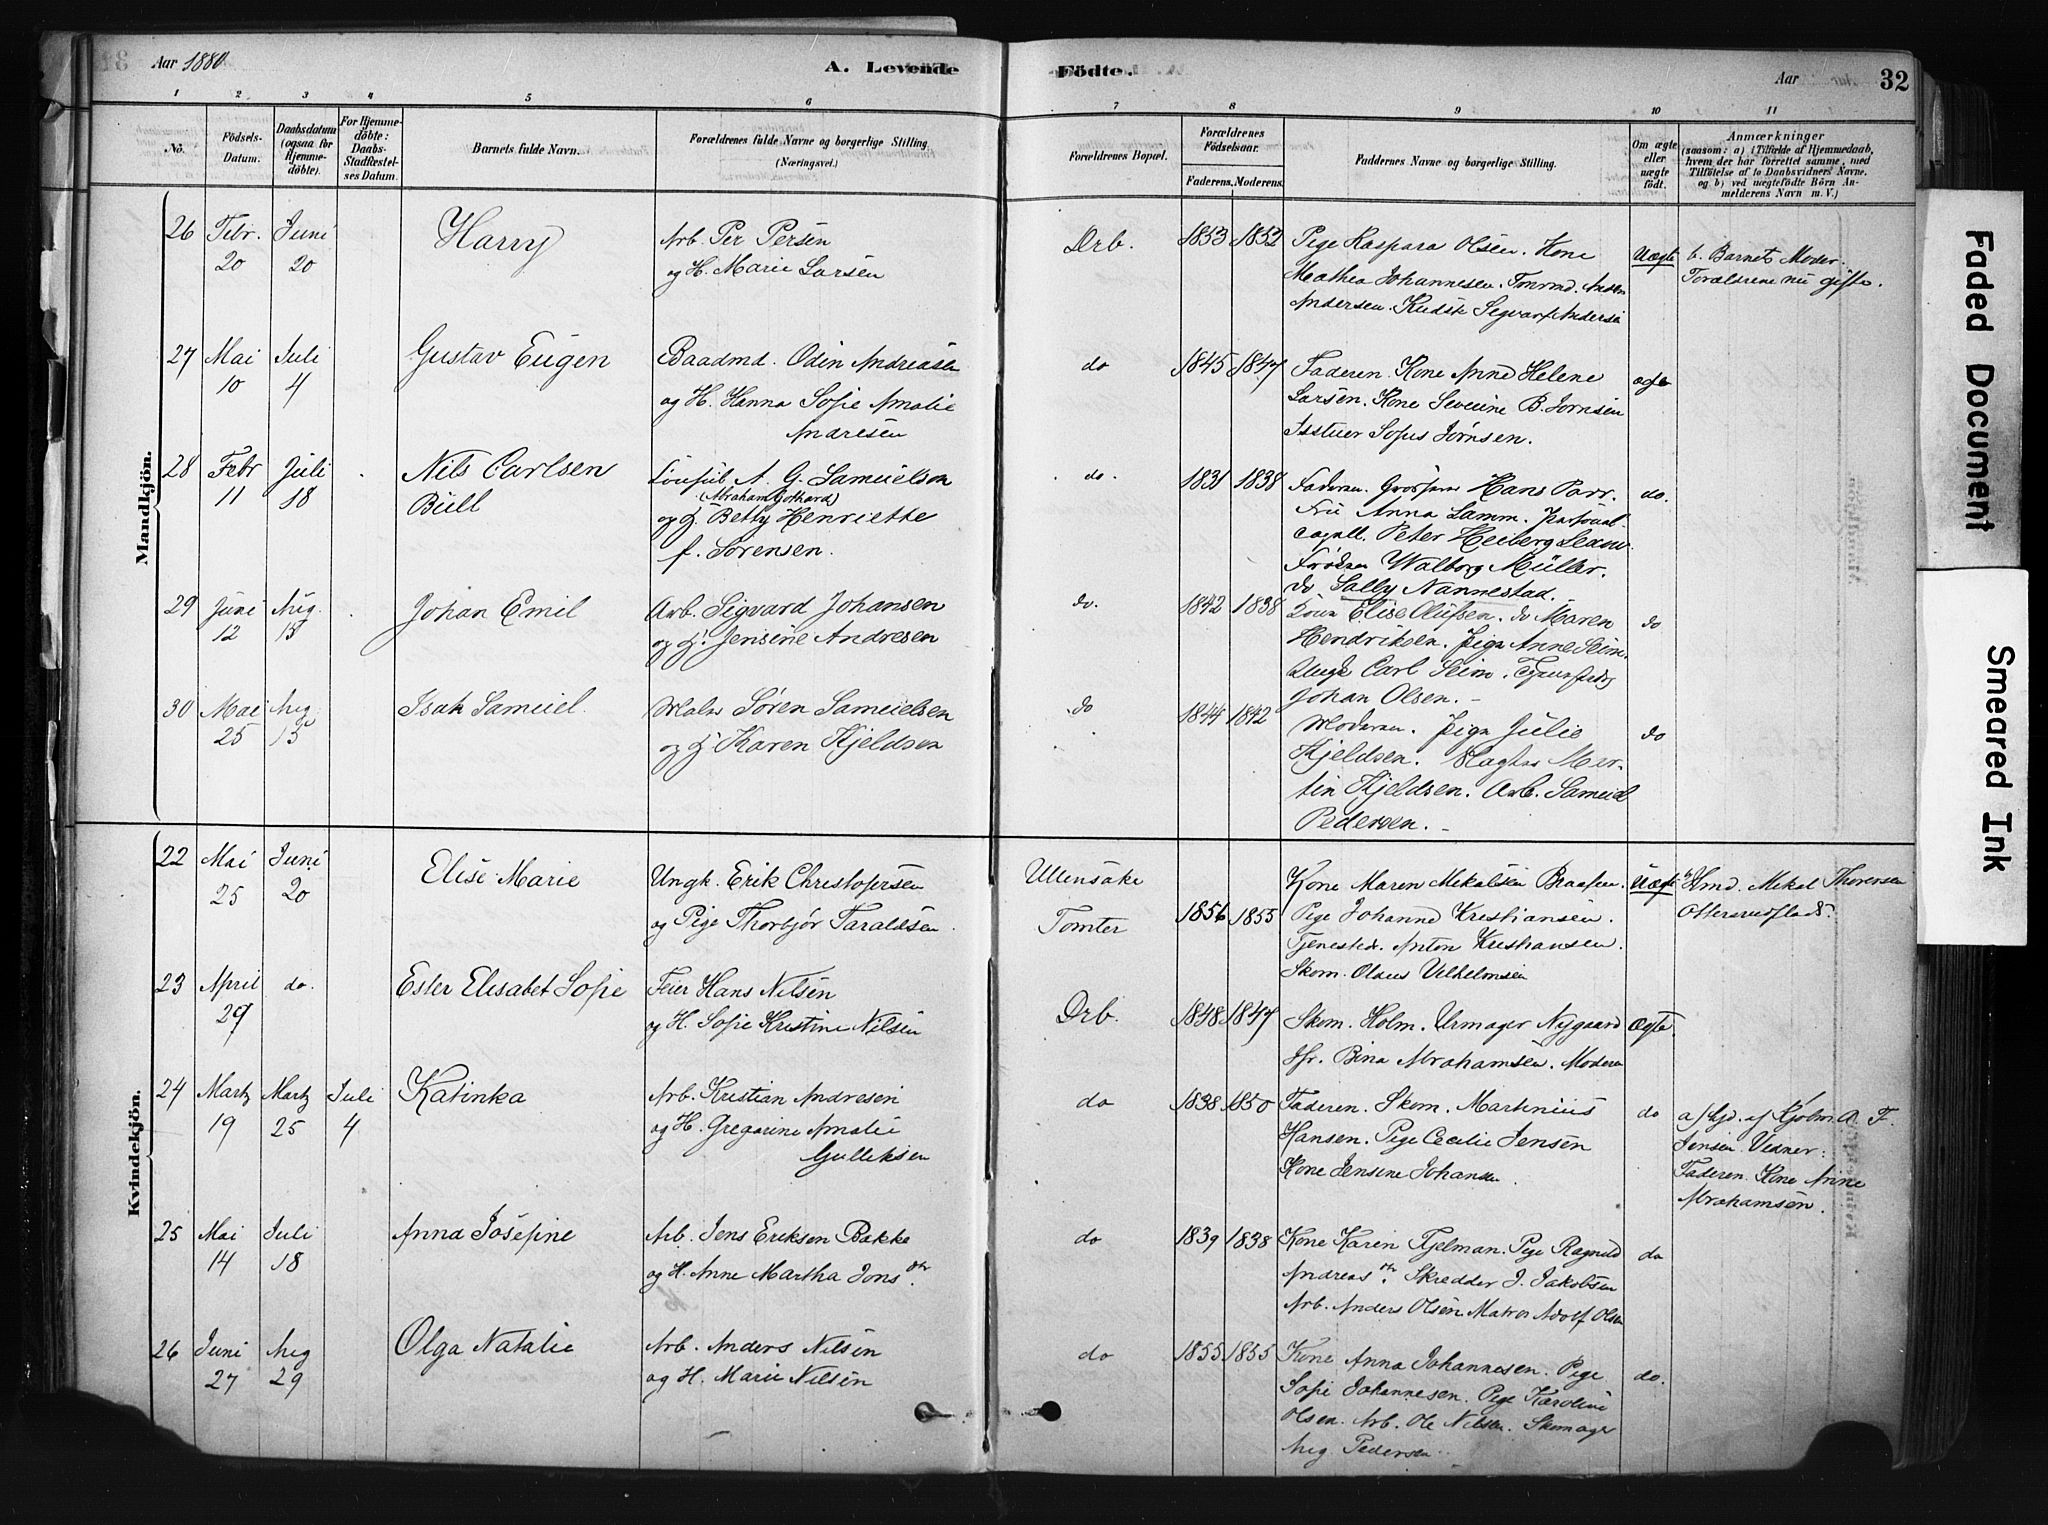 Aar 1880
A. Levende Födte.
Aar
32
1 2 3 4 5 6 7 8 9 10 11
No.
Födsels-Datum.
Daabsdatum (ogsaa for Hjemme-döbte).
For Hjemme-döbte: Daabs-Stadfæstel-ses Datum.
Barnets fulde Navn.
Forældrenes fulde Navne og borgerlige Stilling.
(Næringsvei.)
Forældrenes Bopæl.
Forældrenes Födselsaar.
Faderens. Moderens.
Faddernes Navne og borgerlige Stilling.
Om ægte eller uægte födt.
Anmærkninger
(saasom: a) i Tilfælde af Hjemmedaab, hvem der har forrettet samme, med Tilföielse af to Daabsvidners Navne, og b) ved uægtefödte Börn Anmelderens Navn m. V.)
Mandkjön.
26 Febr. 20 Juni 20 Harry
Arb. Per Persen
og H. Marie Larsen
Drb. 1853 1852
Pige Kaspara Olsen. Kone
Mathea Johannesen. Tømrmd. Anders
Andersen. Kudsk Segvart Anderse
Uægte
b. Barnets Moder.
Forældrene nu gifte.
27 Mai 10 Juli 4 Gustav Eugen
Baadmd. Odin Andreasen
og H. Hanna Sofie Amalie
Andresen
do 1845 1847
Faderen. Kone Anne Helene
Larsen. Kone Severine B. Jørnsen
Sofus Jørnsen.
ægte
28 Febr 11 Juli 18 Nils Carlsen
Büll
A. G. Samuelson
(Abraham Gothard)
og H. Betty Henriette
f. Sørensen.
do. 1831 1838
Faderen. Hans Parr.
Fru Anna Lamm.
Peter Heiberg
Frøken Walborg Müller.
do Sally Nannestad.
do.
29 Juni 12 Aug. 15 Johan Emil
Arb. Sigvard Johansen
og H. Jensine Andresen
do. 1842 1838
Kone Elise Olufsen. do Maren
Hendriksen. Pige Anne Seim.
Ungk Carl Seim.
Johan Olsen.
do
30 Mai 25 Aug. 15 Isak Samuel
Maler Søren Samuelsen
og H. Karen Kjeldsen
do 1844 1842
Moderen. Pige Julie
Kjeldsen. Mer-
tin Kjeldsen. Arb. Samuel
Pedersen.
do
Kvindekjön.
22 Mai 25 Juni 20 Elise Marie
Ungk. Erik Christofersen
og Pige Thorbjør Taraldsen.
Ullensaker
Tomter
1856 1855
Kone Maren Mekalsen Braaten.
Pige Johanne Kristiansen.
Tjenestedr. Anton Kristiansen.
Skom. Olaus Vilhelmsen
Uægte
b Hmd. Mekal Thoresen
23 April 29 do. Ester Elisabet Sofie
Feier Hans Nilsen
og H. Sofie Kristine Nilsen
Drb. 1848 1847
Skom. Holm. Urmager Nygaard
Jfr. Bina Abrahamsen. Moderen
Ægte
24 Martz 19 Martz 25 Juli 4 Katinka
Arb. Kristian Andresen
og H. Gregorine Amalie
Gulliksen
do 1838 1850
Faderen. Skom. Martinius
Hansen. Pige Cecilie Jensen
Kone Jensine Johansen.
do
a/ Hjd. af Kjøbm. A. F.
Jensen Vidner:
Faderen. Kone Anne
Abrahamsen.
25 Mai 14 Juli 18 Anna Josefine
Arb. Jens Eriksen Bakke
og H. Anne Martha Jonsdtr.
do 1839 1838
Kone Karen Fjelman. Pige Ragnild
Andreasdtr. Skredder J. Jakobsen
Arb. Anders Olsen Matros Adolf Olsen
do
26 Juni 27 Aug 29 Olga Natalie
Arb. Anders Nilsen
og H. Marie Nilsen
do 1855 1855
Kone Anna Johannesen. Pige
Sofie Johannesen. Pige Karoline
Olsen. Arb. Ole Nilsen. Skomager
Aug. Pedersen.
do.
Faded Document
Smeared Ink